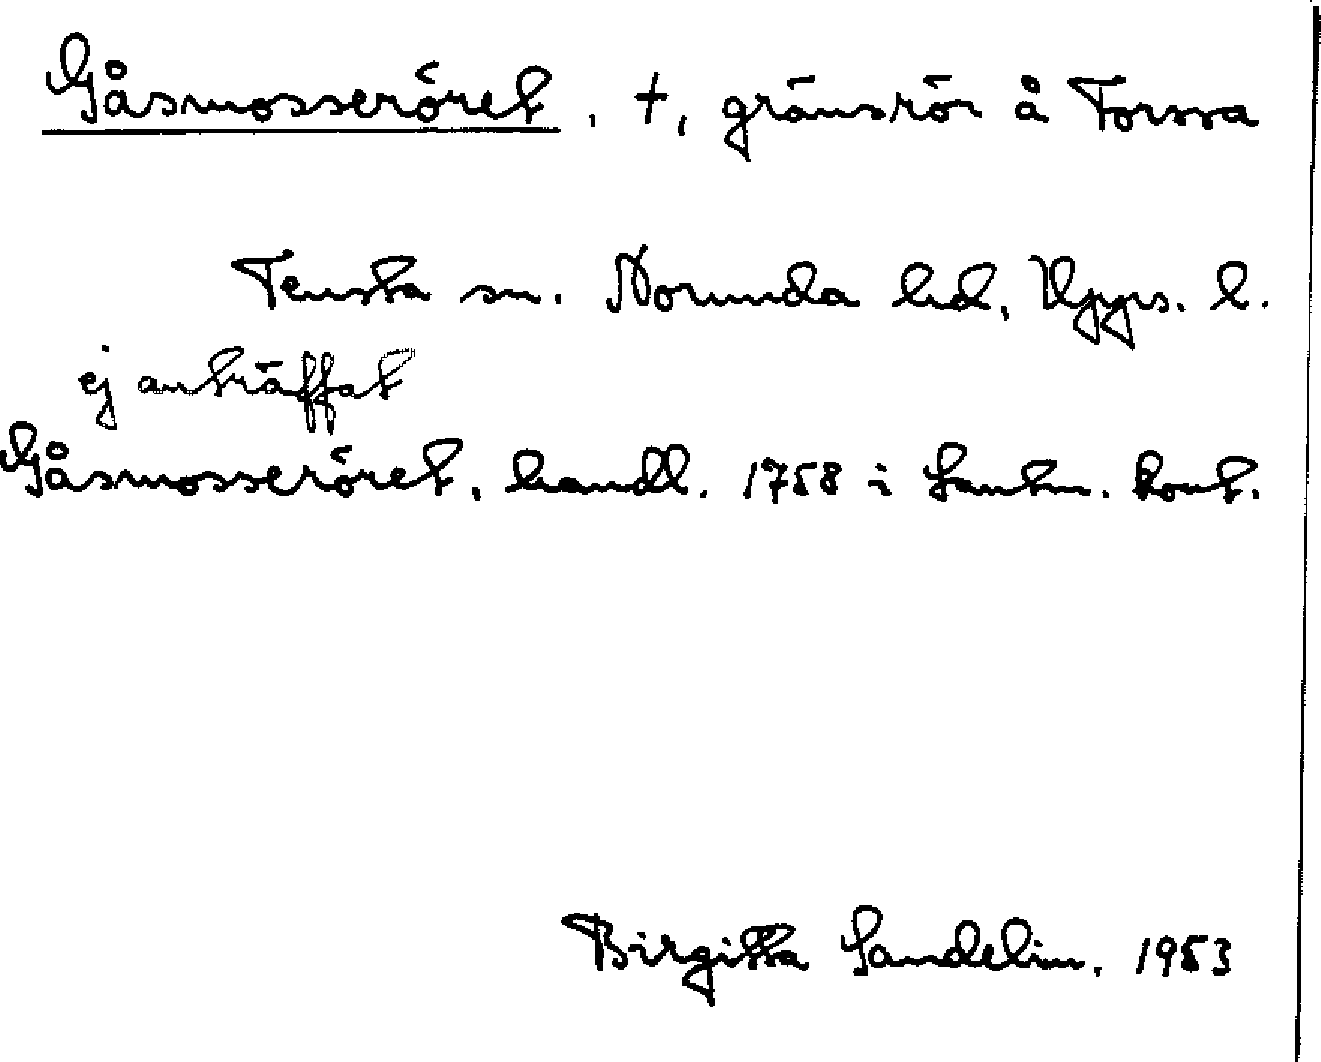 Gåsmosseröret, +, gränsrör å Forssa
Tensta sn. Norunda hd, Upps. l.
ej anträffat
Gåsmosseröret, handl. 1758 i Lantm. kont.
Birgitta Sandelin. 1953